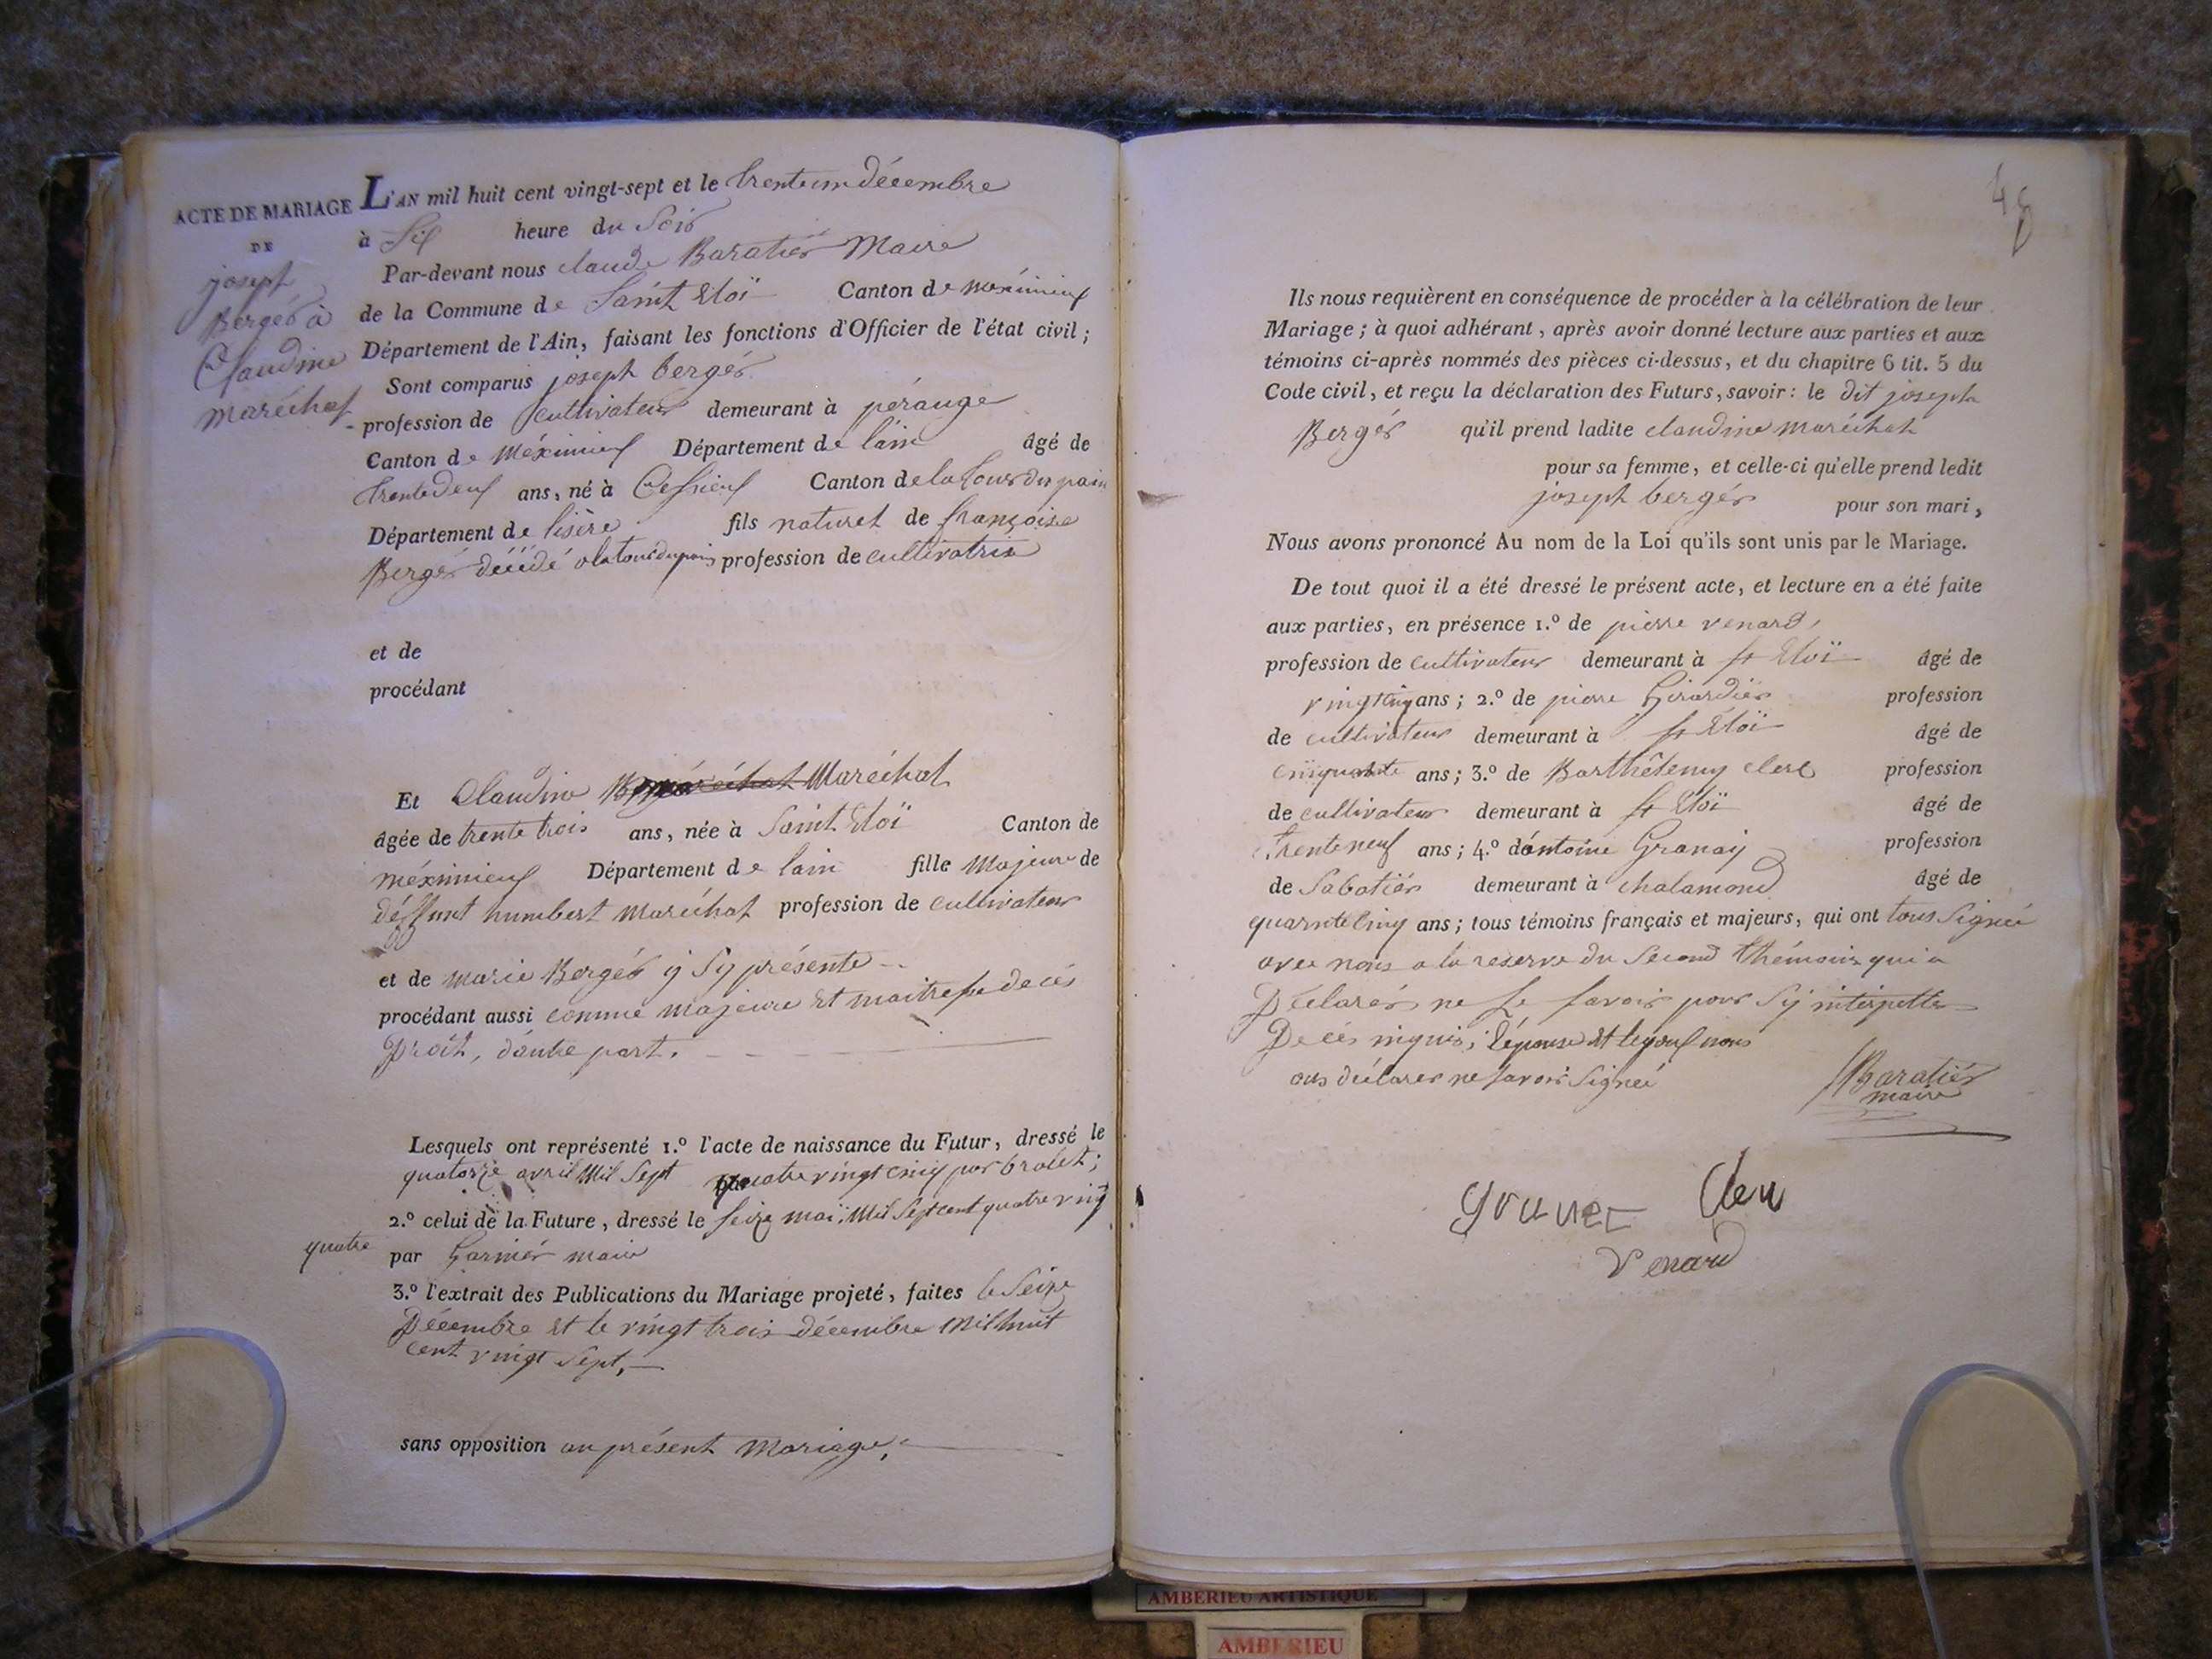 ACTE DE MARIAGE
DE
joseph
Bergér à
Claudine
maréchal
L'AN mil huit cent vingt-sept et le trenteun décembre
à Six heure du Soir
Par-devant nous claude Baratiér Maire
de la Commune de Saint Eloï Canton de méximieux
Département de l'Ain, faisant les fonctions d'Officier de l'état civil ;
Sont comparus joseph bergér
profession de cultivateur demeurant à pérouge
Canton de Méximieux Département de lain âgé de
trentedeux ans, né à Cessieux Canton de la tour du pain
Département de lisère fils naturel de françoise
Bergér décédé a la tour du pain profession de cultivatrix
et de
procédant
Et Claudine Maréchal
âgée de trente trois ans, née à Saint Eloï Canton de
méximieux Département de lain fille Majeure de
déffunt humbert Maréchal profession de cultivateur
et de marie Bergér y Sy présente
procédant aussi comme majeure et maitresse de cés
Droit, dautre part.
Lesquels ont représenté 1.º l'acte de naissance du Futur, dressé le
quatorze avril Mil Sept quatre vingt cinq par brolet ;
2.º celui de la Future, dressé le seize maï Mil Sept cent quatre ving
quatre
par Garniér maire
3.º l'extrait des Publications du Mariage projeté, faites le Seize
Décembre et le vingt trois décembre Mil huit
cent vingt Sept.
sans opposition au présent Mariage.
Ils nous requièrent en conséquence de procéder à la célébration de leur
Mariage ; à quoi adhérant, après avoir donné lecture aux parties et aux
témoins ci-après nommés des pièces ci-dessus, et du chapitre 6 tit. 5 du
Code civil, et reçu la déclaration des Futurs, savoir : le dit joseph
Bergér qu'il prend ladite claudine maréchal
pour sa femme, et celle-ci qu'elle prend ledit
joseph bergér pour son mari,
Nous avons prononcé Au nom de la Loi qu'ils sont unis par le Mariage.
De tout quoi il a été dressé le présent acte, et lecture en a été faite
aux parties, en présence 1.º de pierre venard,
profession de cultivateur demeurant à st Eloï âgé de
vingtcinq ans ; 2.º de pierre Girardiér profession
de cultivateur demeurant à st Eloï âgé de
cinquante ans ; 3.º de Barthélemy clerc profession
de cultivateur demeurant à st Eloï âgé de
trenteneuf ans ; 4.º dántoine Granay profession
de Sabotiér demeurant à chalamond âgé de
quarntecinq ans ; tous témoins français et majeurs, qui ont tous Signeé
avec nous a la reserve du Second thémoin qui a
Déclarér ne le savoir pour Sy interpetter
De cés inquis ; lépouse et lepoux nous
ons déclarer ne savoir Signeé
Baratiér
maire
Clerc
Venard
AMBERIEU ARTISTIQUE
AMBERIEU